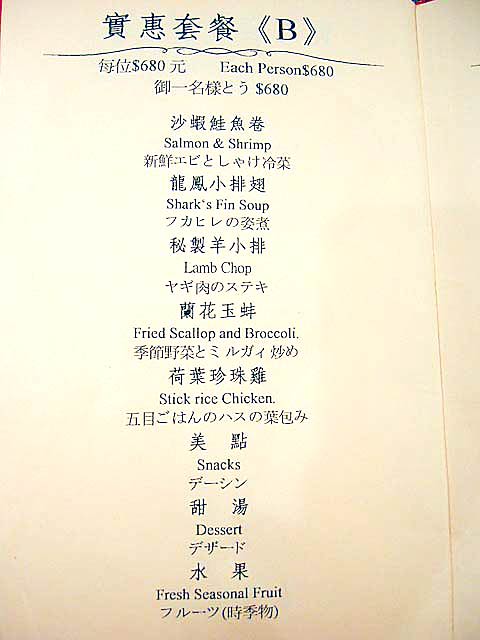 實惠套餐《B》
每位$680 元 Each Person$680
御一名樣とう $680
沙蝦鮭魚卷
Salmon & Shrimp
新鮮エビとしゃけ冷菜
龍鳳小排翅
Shark's Fin Soup
フカヒレの姿煮
秘製羊小排
Lamb Chop
ヤギ肉のステキ
蘭花玉蚌
Fried Scallop and Broccoli.
季節野菜とミルガィ炒め
荷葉珍珠雞
Stick rice Chicken.
五目ごはんのハスの葉包み
美 點
Snacks
デーシン
甜 湯
Dessert
デザード
水 果
Fresh Seasonal Fruit
フルーツ(時季物)